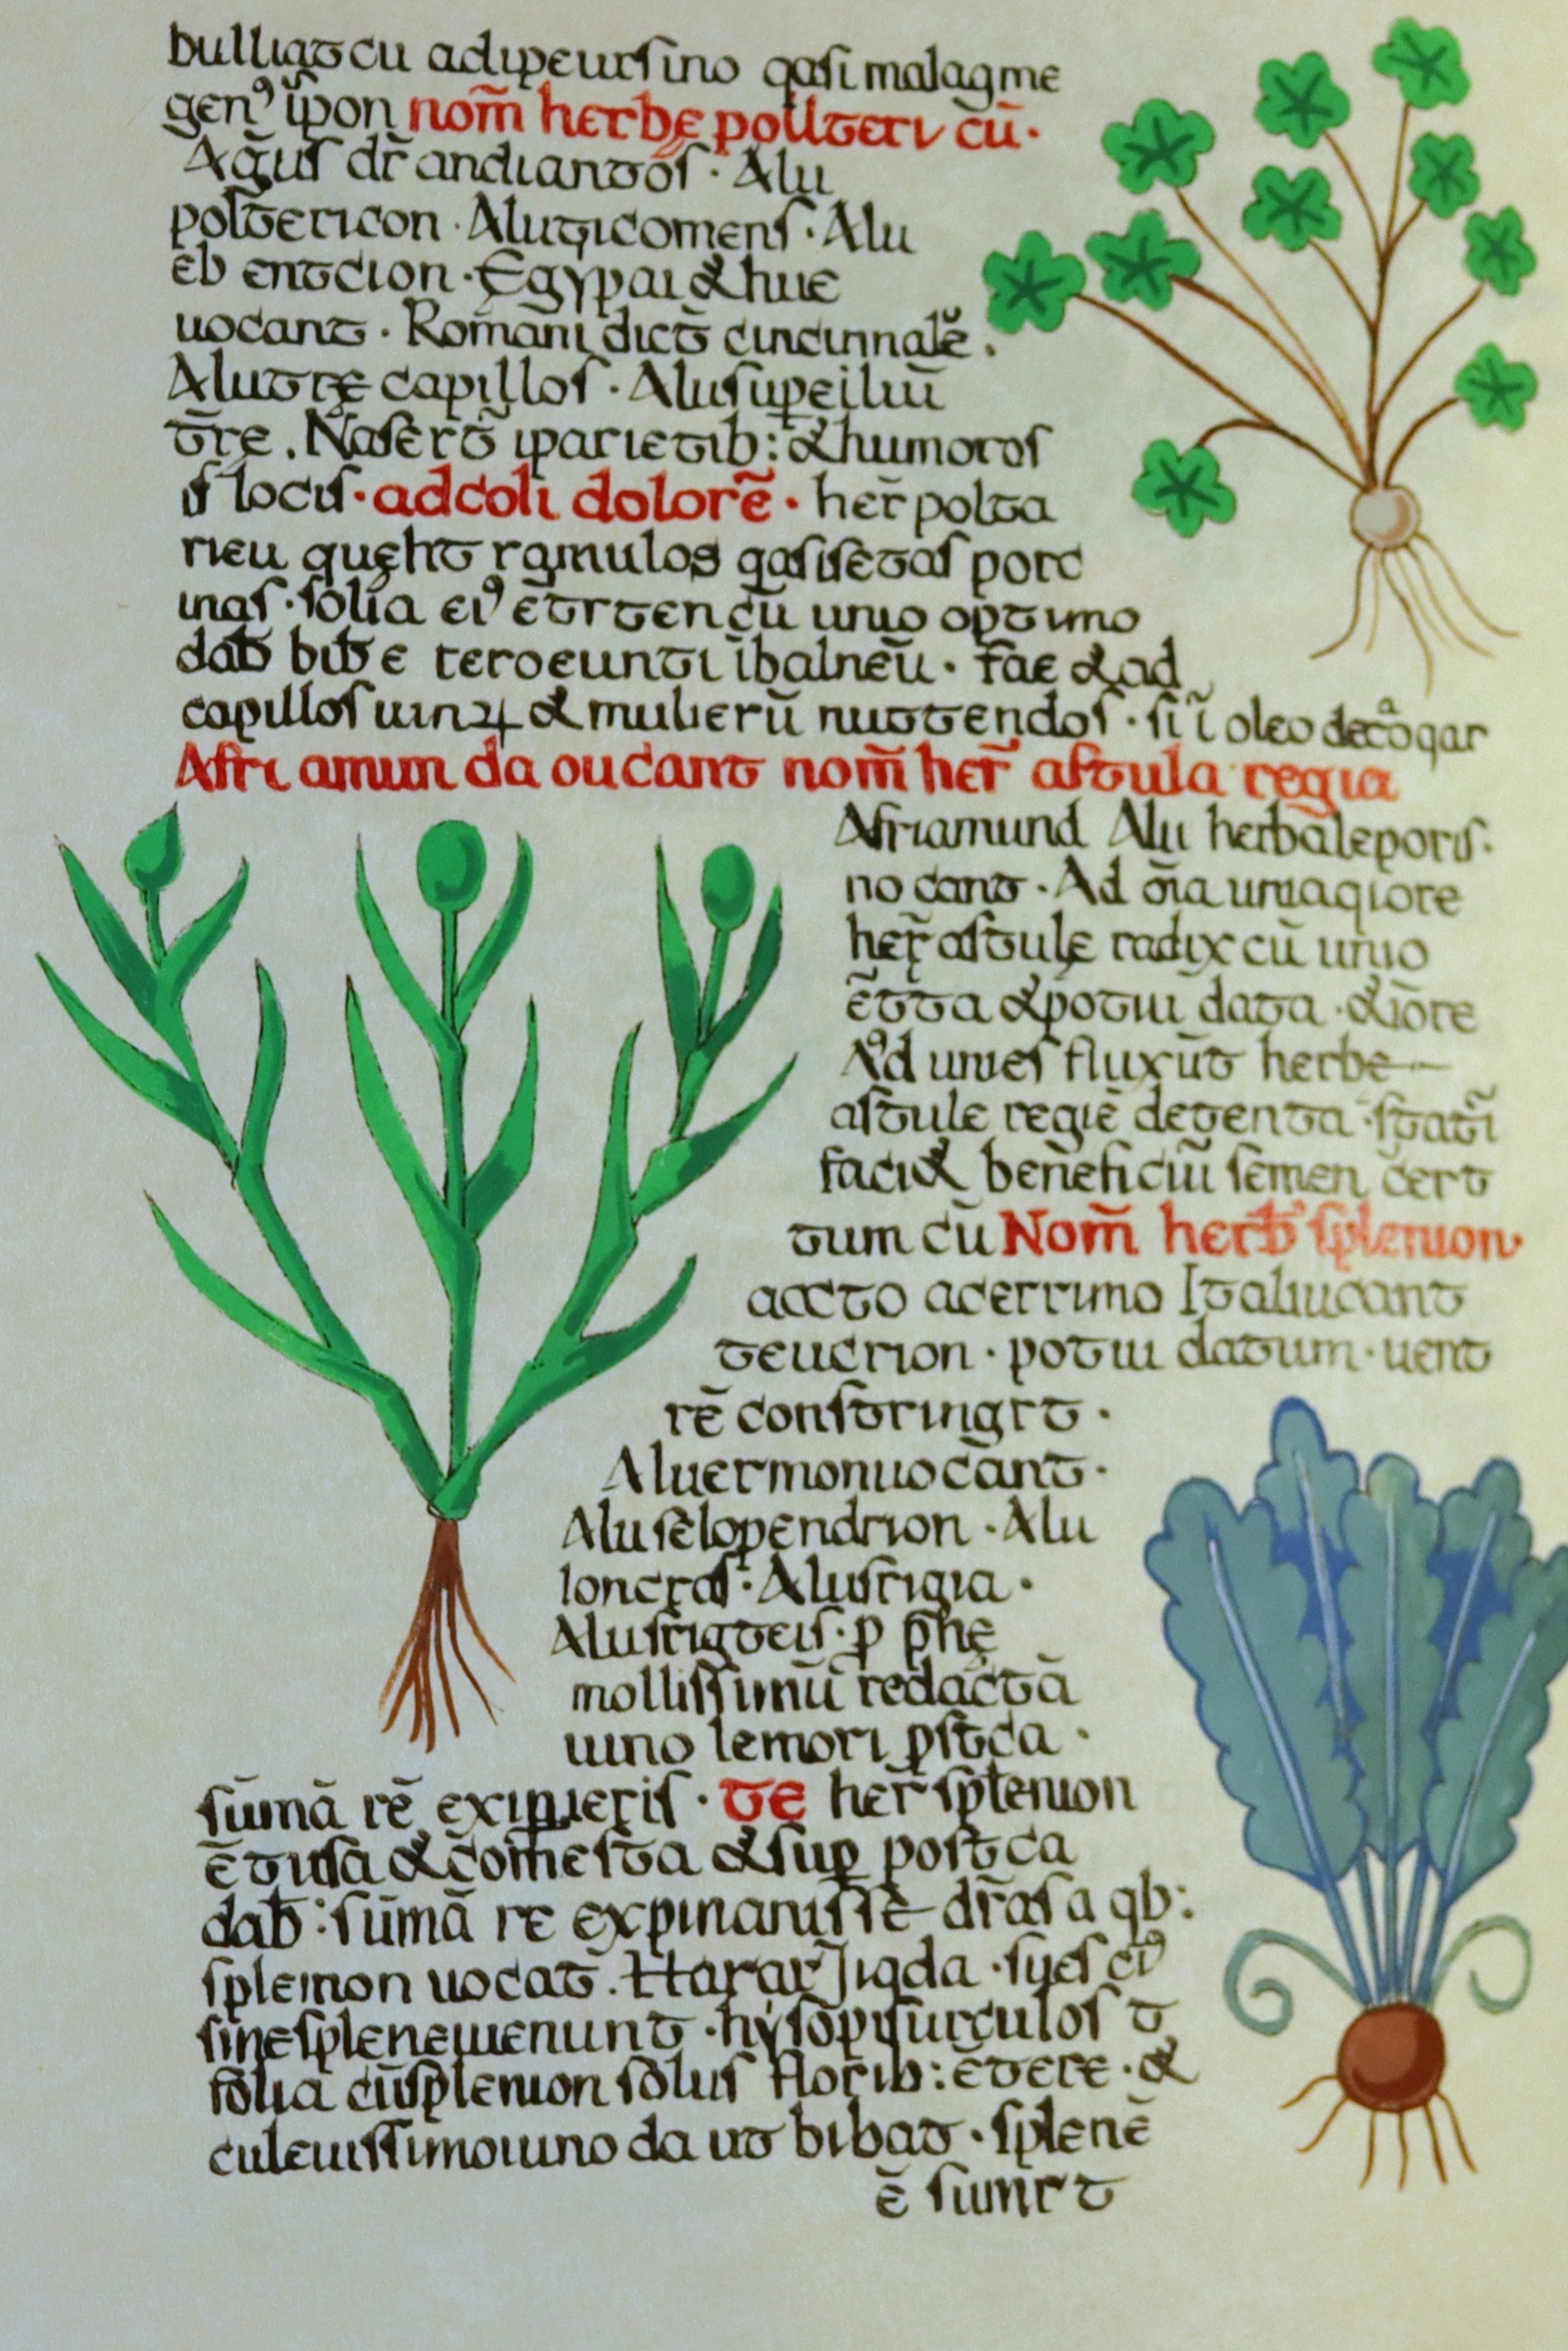 bulliat cu adipeursino qasi malagme
gen⁹ ip̄on nom̄ herbe pollteri cū·
Ag̅us dr̄ andiantos · Alu
polt̄ericon · Aluticomens · Alu
eb entcion · Egypai & hue
uocant · Romāni dict̄ cincinnalē.
Alutre capillos · Alusupeiliū
tr̄e. Nāsert̄ iparietib: & humoros
is locis · ad coli dolorē · her̄ polta
rieu queht ramulos qasisetas porc
inas · folia ei⁹ ētrten cū uino optimo
dab̄ bib̄ e teroeunti ībalneū · fae & ad
capillos uirꝝ & mulierū nuttendos · si ī oleo decoqar
Afri amun da oucant nom̄ her̄ astula regia
Afriamund Alu herbaleporis.
no cant · Ad ōia uniaqiore
her̄ astule radix cū unio
ētta & potui data · & iōre
Ad unies fluxūt herbe
astule regiē detenta · statī
faci& beneficiū semen cert
tum cū Nom̄ herb̄ splenion
accto acerrimo Italiucant
teucrion · potui datum · uent
rē constringrt ·
Aluermonuocānt ·
Aluselopendrion · Alu
loncras · Alusrigia ·
Alusrigteis · p p̄he
mollissimū redactā
uino lemori pstca ·
sūmā rē exinieris · te her̄ splenion
ētusa & comesta & sup postca
dab̄: sūmā re expinanissē dr̄as a qb:
splemon uocat̄. Hararjigda · sues ei⁹
sinespleneuienunt · hysopisurculos t
folia cūsplenion solus florib: ētere · &
culeuissimouino da ut bibat · splenē
ē sumrt